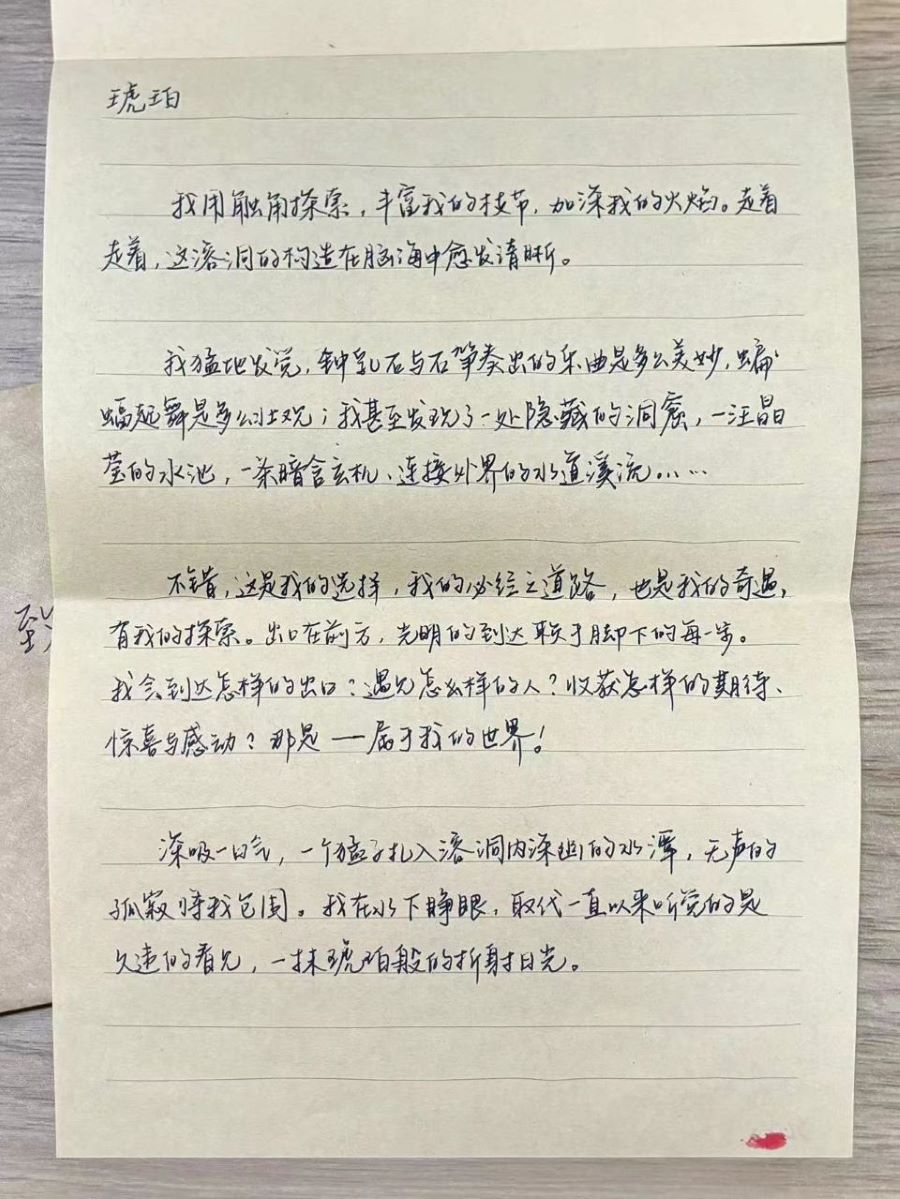 琥珀
我用触角探索，丰富我的枝节，加深我的火焰。走着
走着，这溶洞的构造在脑海中愈发清晰。
我猛地发觉，钟乳石与石笋奏出的乐曲是多么美妙，蝙
蝠起舞是多么壮观；我甚至发现了一处隐藏的洞窟，一汪晶
莹的水池，一条暗含玄机、连接外界的水道溪流……
不错，这是我的选择，我的必经之道路，也是我的奇遇，
有我的探索。出口在前方，光明的到达取决于脚下的每一步。
我会到达怎样的出口？遇见怎么样的人？收获怎样的期待、
惊喜与感动？那是——属于我的世界！
深吸一口气，一个猛子扎入溶洞内深幽的水潭，无声的
孤寂将我包围。我在水下睁眼，取代一直以来听觉的是
久违的看见，一抹琥珀般的折射日光。
至